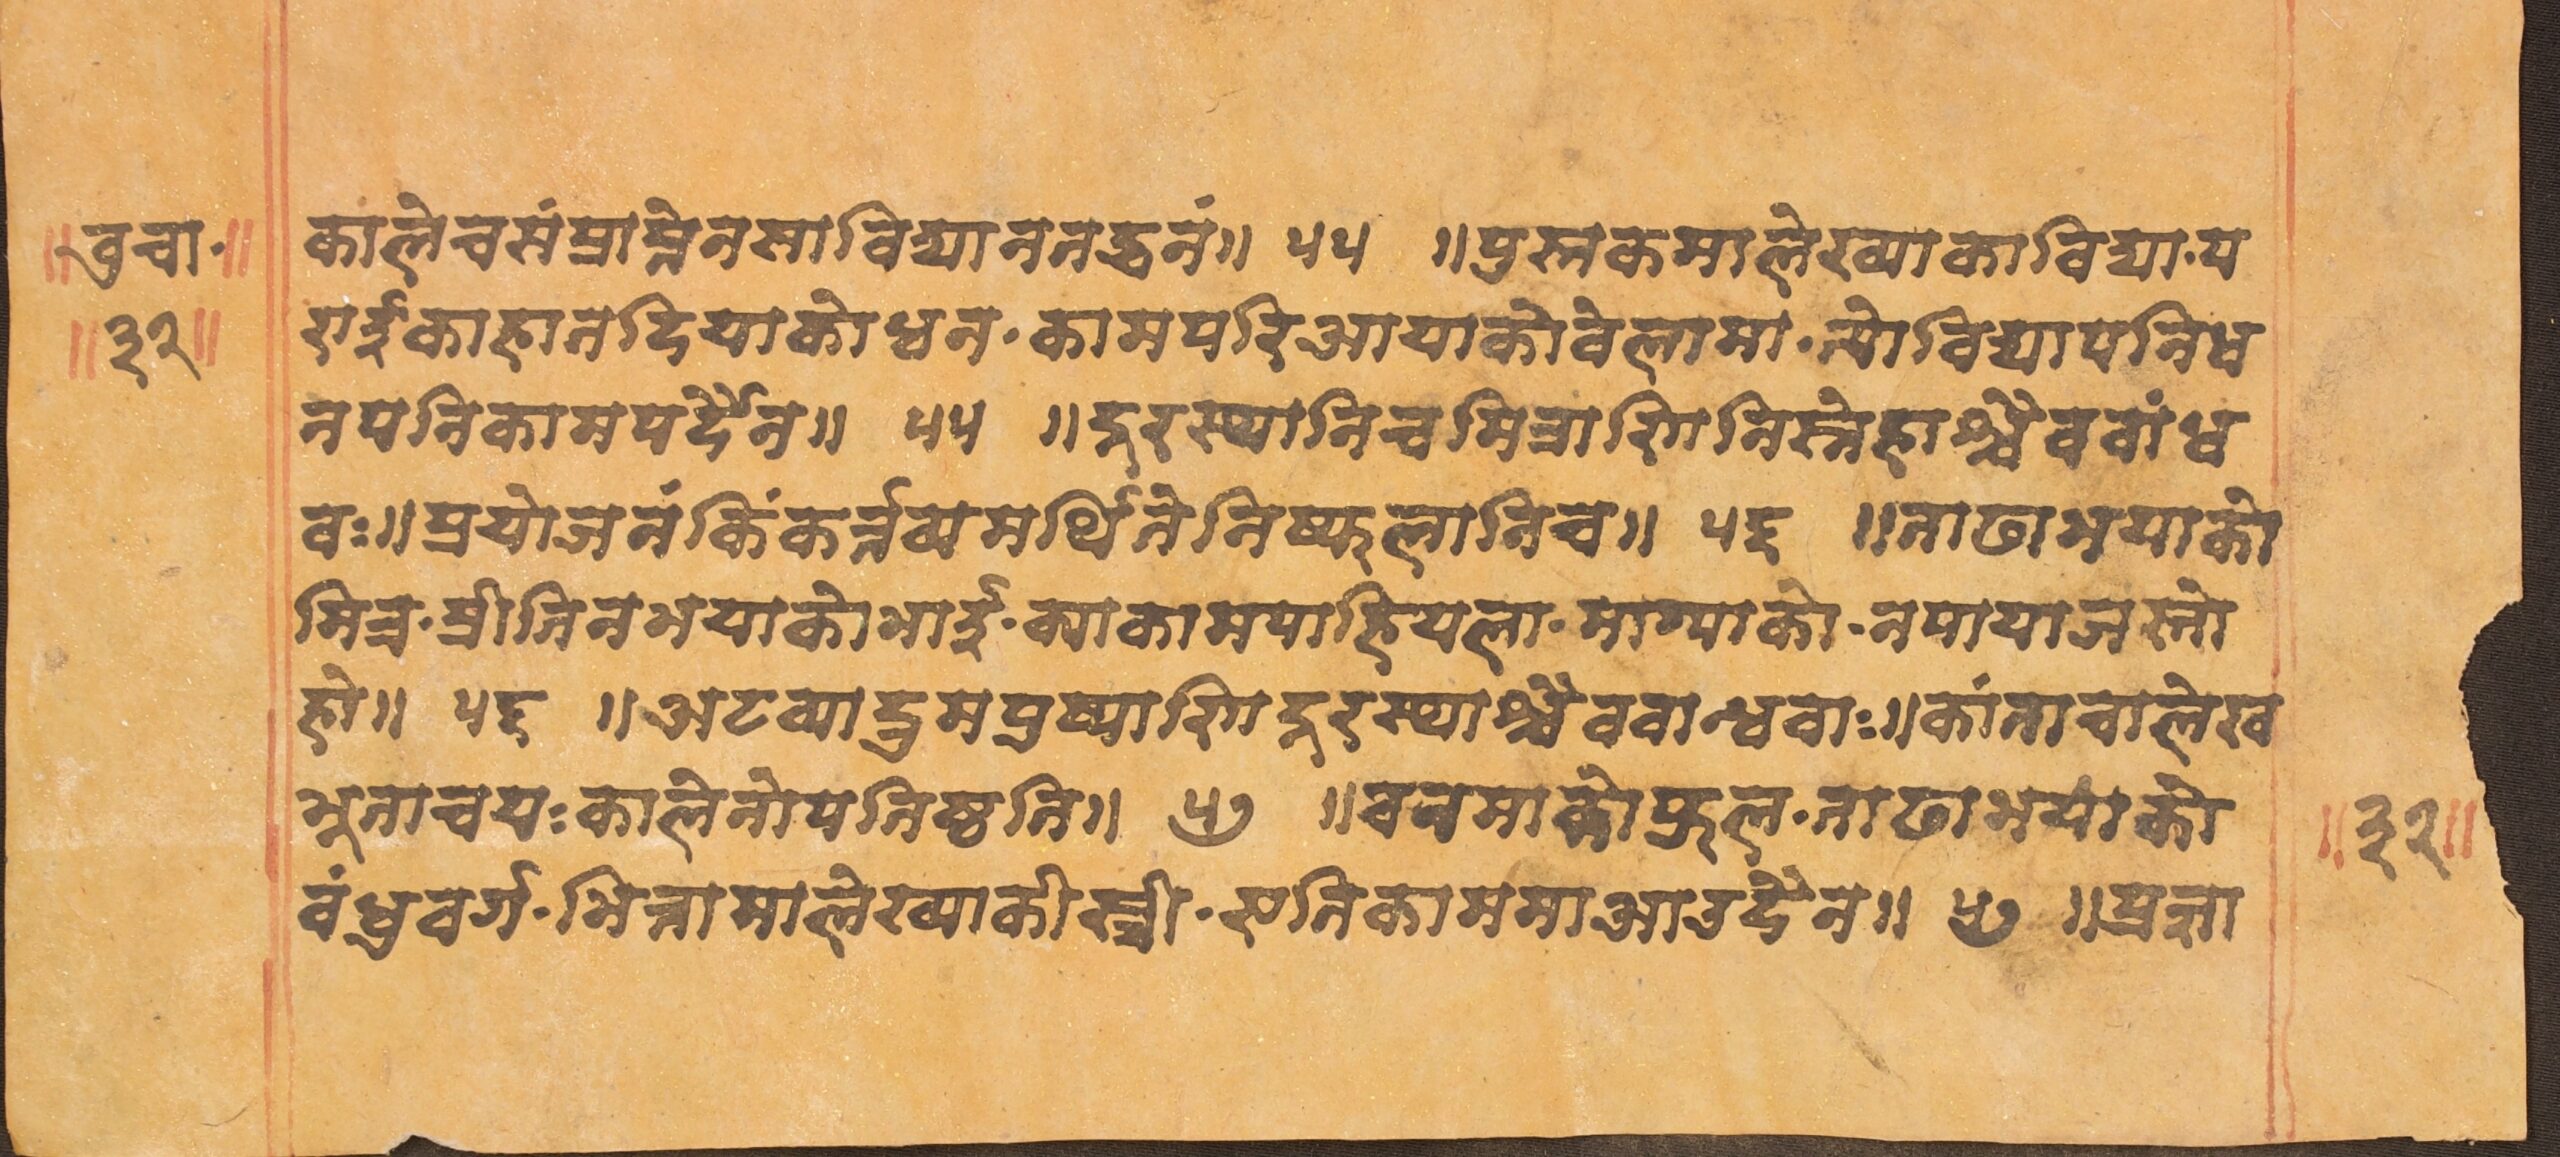 ॥वुचा॰॥
॥३२॥
कालेचसंप्राप्तेनसाविद्यानतद्धनं॥ ५५ ॥पुस्तकमालेख्याकाविद्या॰प
राईकाहातदियाकोधन॰कामपरिआयाकोवेलामा॰त्योविद्यापनिध
नपनिकामपर्दैन॥ ५५ ॥दूरस्थानिचमित्राणिनिस्नेहाश्चैववांध
वः॥प्रयोजनंकिंकर्त्तव्यमर्थिनेनिष्फलानिच॥ ५६ ॥ताढाभयाको
मित्र॰प्रीतिनभयाकोभाई॰क्याकामपाहियला॰माग्याको॰नपायाजस्तो
हो॥ ५६ ॥अटव्याद्रुमप्रष्पाणिदूरस्थाश्चैववान्धवाः॥कांताचालेख
भूताचयःकालेनोपतिष्ठति॥ ५७ ॥वनमाकोफूल॰ताढाभयाको
वंधुवर्ग॰भित्तामालेख्याकीस्त्री॰एतिकाममाआउदैन॥ ५७ ॥प्रज्ञा
॥३२॥